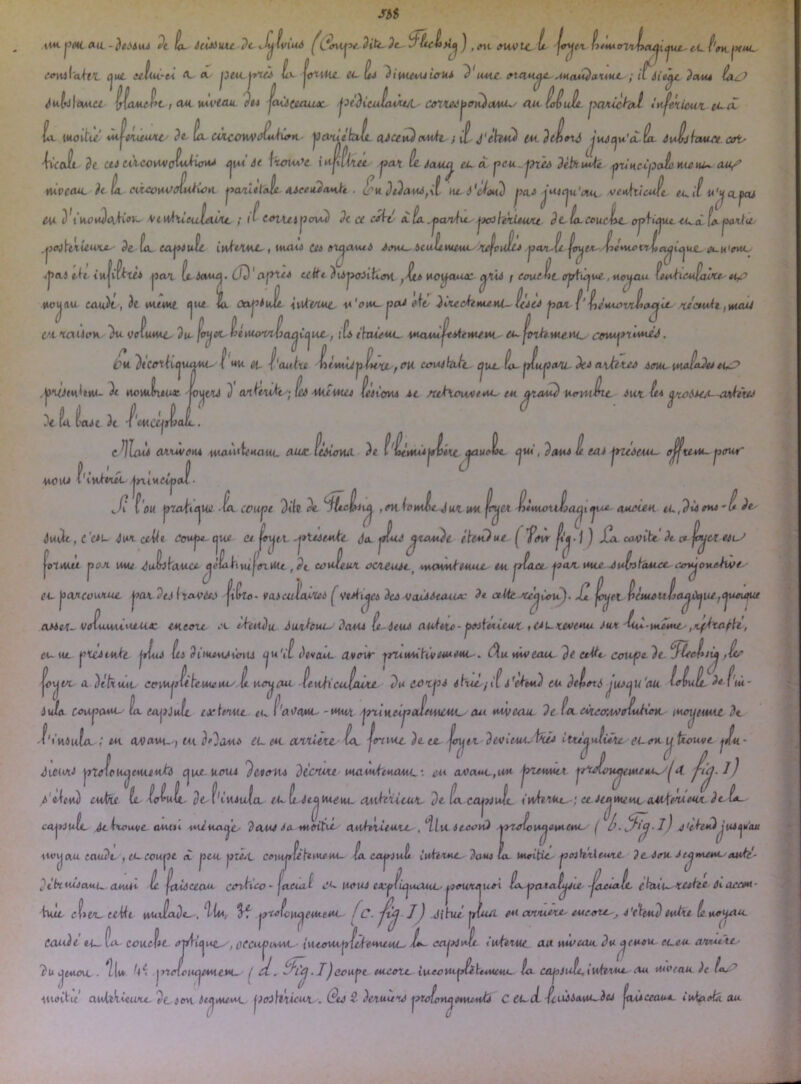 588
un peu au-dessous de la scissure de Sylvius (Coupe dite de Flechsig), on ouvre le foyer hémorrhagique et l'on peut
constater que celui-ci a à peu près la forme et les dimensions d'une orange mandarine ; il siège dans la
substance blanche, au niveau des faisceaux pédiculaires correspondant au lobule pariétal inférieur et à
la moitié inférieure de la circonvolution pariétale ascendante ; il s'étend en dehors jusqu'à la substance cor-
ticale de ces circonvolutions qui se trouve infiltrée par le sang et à peu près détruite principalement au
niveau de la circonvolution pariétale ascendante. En dedans, il ne s'étend pas jusqu'au ventricule et il n'y a pas
eu d'inondation ventriculaire ; il correspond de ce côté à la partie postérieure de la couche optique et à la partie
postérieure de la capsule interne, mais ces organes sont seulement refoulés par le foyer hémorrhagique et n'ont
pas été infiltrés par le sang. D'après cette disposition, les noyaux gris, couche optique, noyau lenticulaire et
noyau caudé, de même que la capsule interne n'ont pas été directement lésés par l'hémorrhagie récente, mais
en raison du volume du foyer hémorrhagique, ils étaient manifestement et fortement comprimés.
En décortiquant l'un et l'autre hémisphère, on constate que la plupart des artères sont malades et
présentent de nombreux foyers d'artérite ; les mêmes lésions se retrouvent en grand nombre sur les grosses artères
de la base de l'encéphale.
Mais arrivons maintenant aux lésions de l'hémisphère gauche qui, dans le cas présent offrent pour
nous l'intérêt principal.
Si l'on pratique la coupe dite de Flechsig, on tombe sur un foyer hémorrhagique ancien et, disons-le de
suite, c'est sur cette coupe que ce foyer présente sa plus grande étendue (Voir fig. 1) La cavité de ce foyer est
formée par une substance gélatiniforme, de couleur ocreuse, maintenue en place par une substance conjonctive
et parcourue par des travées fibro-vasculaires (vestiges des vaisseaux de cette région). Le foyer hémorrhagique, quoique
assez volumineux encore et étendu surtout dans le sens antéro-postérieur, est revenu sur lui-même, ratatiné,
et ne présente plus les dimensions qu'il devait avoir primitivement. Au niveau de cette coupe de Flechsig, le
foyer a détruit complètement le noyau lenticulaire du corps strié ; il s'étend en dehors jusqu'au lobule de l'in-
sula coupant la capsule externe et l'avant-mur principalement au niveau de la circonvolution moyenne de
l'insula ; en avant, en dedans et en arrière la forme de ce foyer devient très irrégulière et on y trouve plu-
sieurs prolongements que nous devons décrire maintenant : en avant, un premier prolongement (a fig. I)
s'étend entre le lobule de l'insula et le segment antérieur de la capsule interne ; ce segment antérieur de la
capsule se trouve ainsi ménagé dans sa moitié antérieure. Un second prolongement (b. Fig. I) s'étend jusqu'au
noyau caudé, et coupe à peu près complètement la capsule interne dans la moitié postérieure de son segment anté-
rieur détruisant ainsi le faisceau cortico-facial et nous expliquant pourquoi la paralysie faciale était restée si accen-
tuée chez cette malade. Un 3e prolongement (c. fig. I) situé plus en arrière encore, s'étend entre le noyau
caudé et la couche optique, occupant incomplètement la capsule interne au niveau du genou et en arrière
du genou. Un 4e prolongement (d. Fig. I) coupe encore incomplètement la capsule interne au niveau de la
moitié antérieure de son segment postérieur. Ces 2 derniers prolongements c et d laissant des faisceaux intacts au